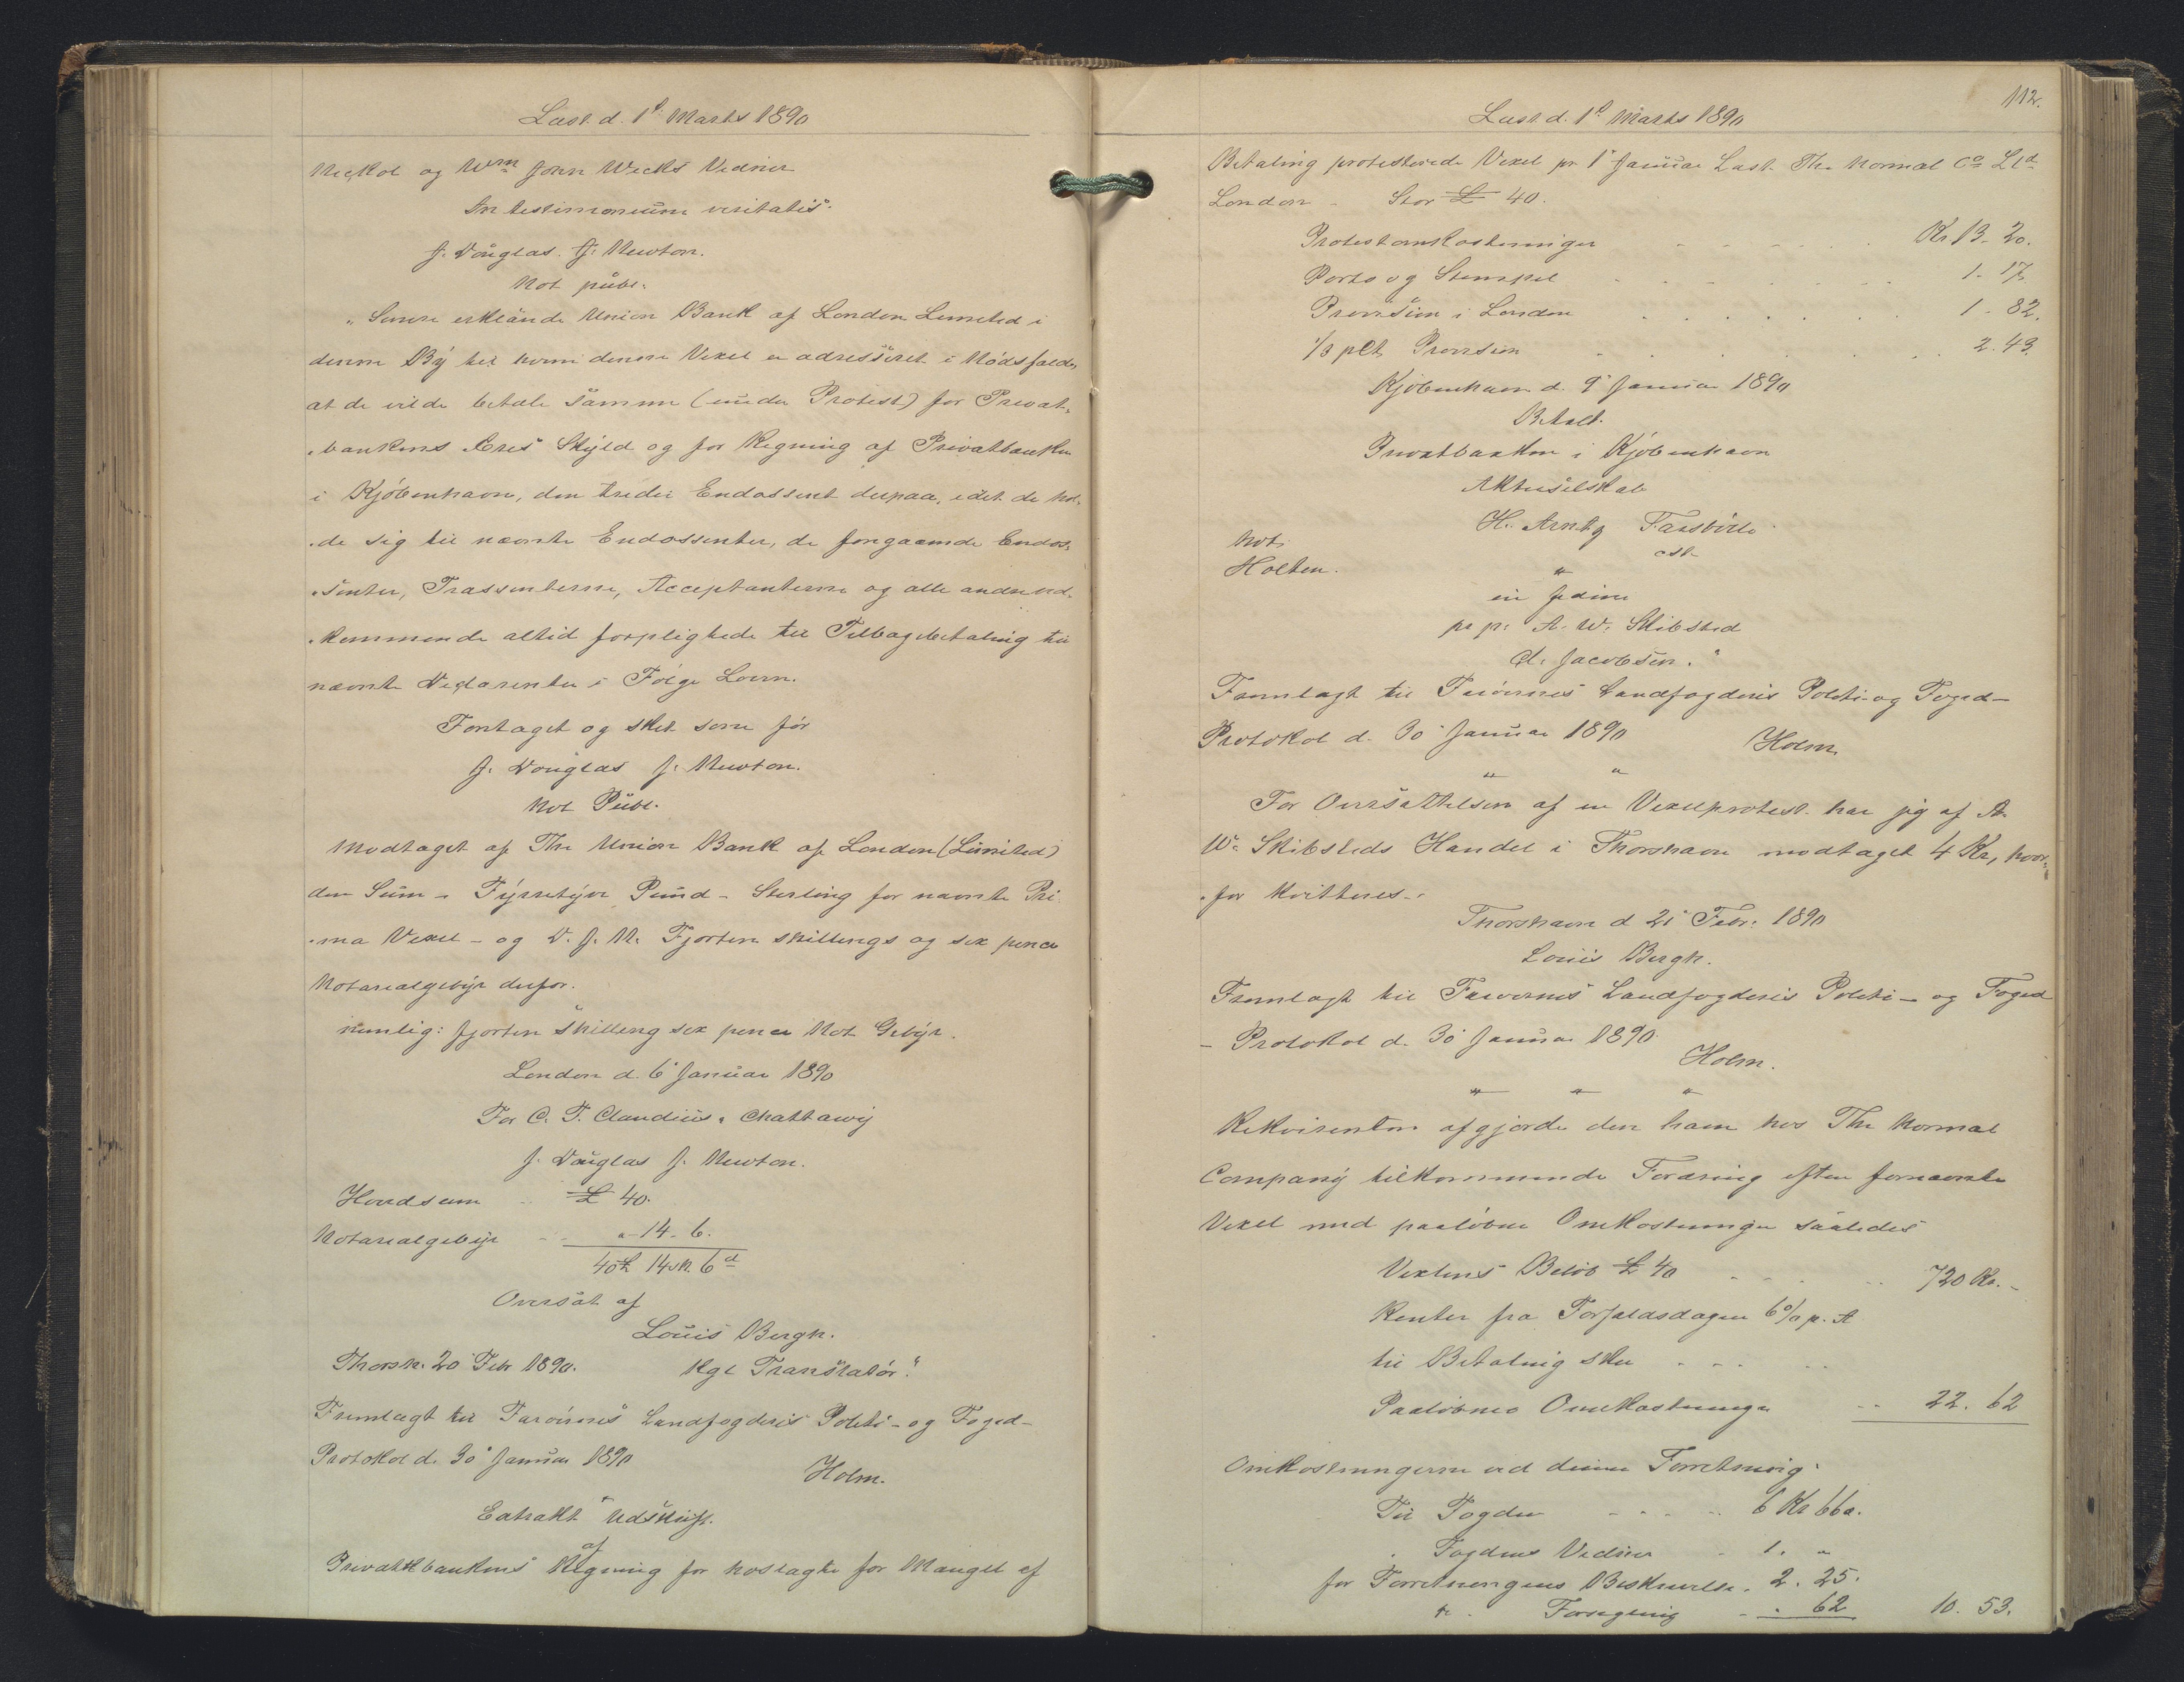 Læst d. 1t Marts 1890
Neckol og Wm John Weeks Vidner
In testimonium veritatis.
J. Douglas. J. Newton.
Not publ.
"Senere erklærede Union Bank af London Limited i
denne By til hvem denne Vexel er adresseret i Nødsfald,
at de vilde betale samme (under Protest) for Privat-
bankens Æres Skyld og for Regning af Privatbanken
i Kjøbenhavn, den tredie Endossent derpaa, idet de hol-
de sig til nævnte Endossenter, de foregaaende Endos-
senter, Trassenterne, Acceptanterne og alle andre ved-
kommende altid forpligtede til Tilbagebetaling til
nævnte i Følge Loven.
Foretaget og sket som før
J. Douglas J. Newton.
Not Publ.
Modtaget af The Union Bank of London (Limited)
den Sum - Fyrretyve Pund - Sterling for nævnte Pri-
ma Vexel - og D. J. N. Fjorten skillings og sex pence
Notarialgebyr derfor.
nemlig: fjorten skilling sex pence Not Gebyr.
London d. 6' Januar 1890
For C. T. Claudius. Chattawy
J. Douglas J. Newton.
Hovedsum £ 40.
Notarialgebyr " 14 - 6.
40£ 14sh. 6d
Oversat af
Louis Bergh.
Thorsh. 20' Febr 1890. Kgl Translatør."
Fremlagt til Færøernes Landfogderis Politi- og Foged-
Protokol d. 30' Januar 1890
Holm.
Extrakt Udskrift.
af
Privatbankens Regning for hoslagte for Mangel af
112.
Læst d. 1t Marts 1890
Betaling protesterede Vexel pr 1' Januar Last The Normal Co Ltd
London - Stor £ 40.
Protestomkostninger Kr 13. 20.
Porto og Stempel 1. 17.
Provision i London 1. 82.
1/3 pCt Provision 2. 43.
Kjøbenhavn d. 9' Januar 1890
Betalt.
Privatbanken i Kjøbenhavn
Aktieselskab
H.
Not.
Holten.
"
pr pr. A. W. Skibsted
d. Jacobsen."
Fremlagt til Færøernes Landfogderis Politi- og Foged-
Protokol d. 30' Januar 1890 Holm
" "
For Oversættelsen af en Vexelprotest har jeg af A.
W. Skibsteds Handel i Thorshavn modtaget 4 Kr, hvor-
for kvitteres.
Thorshavn d 21' Febr. 1890
Louis Bergh.
Fremlagt til Færøernes Landfogderis Politi- og Foged
- Protokol d. 30' Januar 1890.
Holm.
" " "
Rekvirenten afgjorde den ham hos The Normal
Company tilkommende Fordring efter fornævnte
Vexel med paaløbne Omkostninger saaledes
Vexlens Beløb £ 40 720 Kr. -
Renter fra Forfaldsdagen 6% p. A
til Betaling sker
Paaløbne Omkostninger 22. 62
Omkostningerne ved denne Forretning:
Til Fogden 6 Kr 66 ø.
" Fogdens Vidner 1. "
for Forretningens Beskrivelse. 2. 25.
" Forsegling " 62 10. 53.